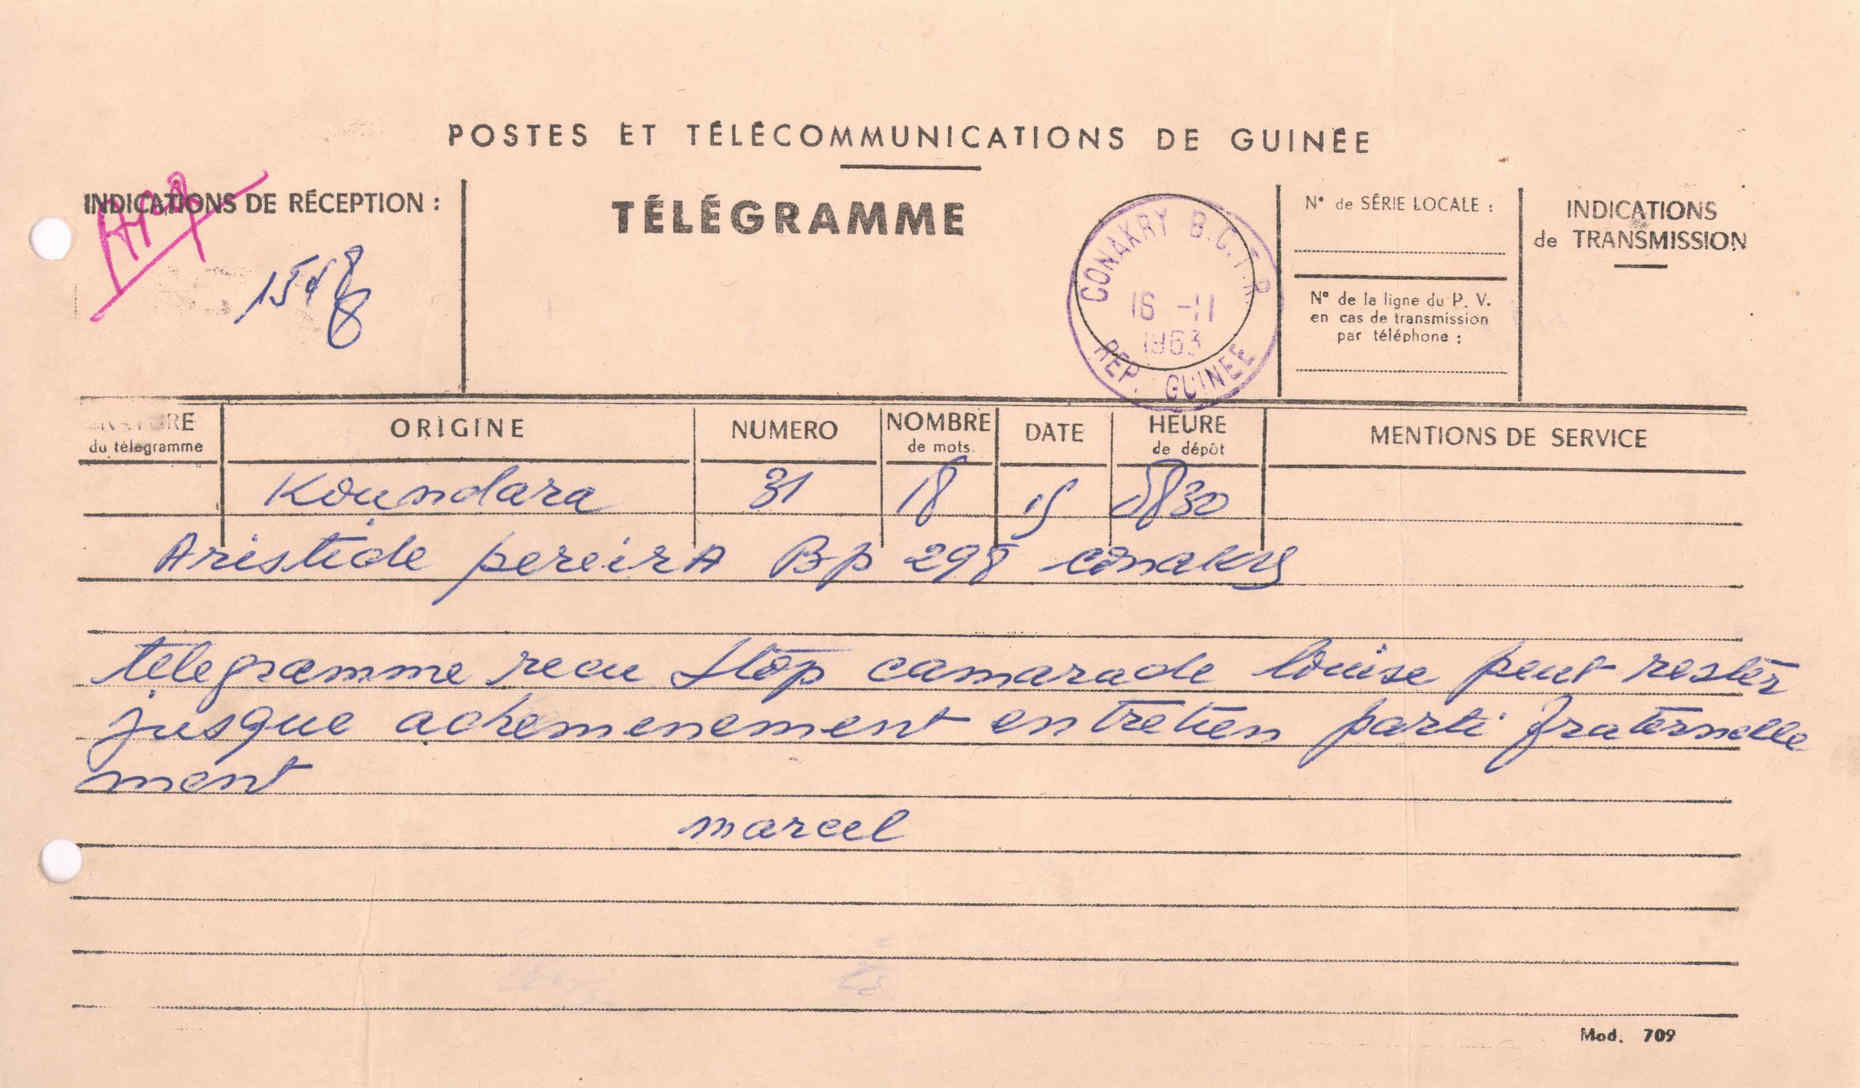 POSTES ET TÉLÉCOMMUNICATIONS DE GUINÉE
INDICATIONS DE RÉCEPTION :
TÉLÉGRAMME
CONAKRY B.C.T.R.
16 -11
1963
REP. GUINEE
N° de SÉRIE LOCALE :
N° de la ligne du P. V.
en cas de transmission
par téléphone :
INDICATIONS
de TRANSMISSION
du télégramme
ORIGINE
NUMERO
NOMBRE
de mots
DATE
HEURE
de dépôt
MENTIONS DE SERVICE
Koundara 31 18 15
Aristide pereirA Bp 298 conakry
telegramme recu stop camarade louise peut rester
jusque achemenement entretien parti fraternelle
ment
marcel
Mod. 709